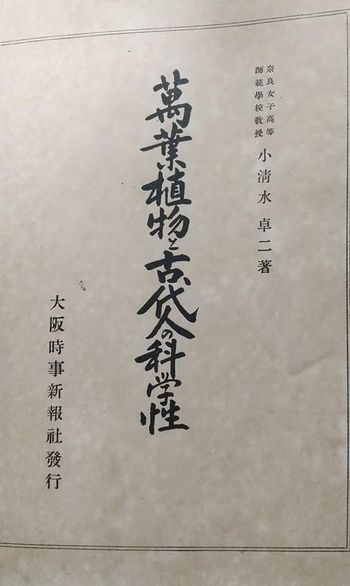 奈良女子高等
師範學校教授
小淸水卓二著
萬葉植物と古代人の科学性
大阪時事新報社發行